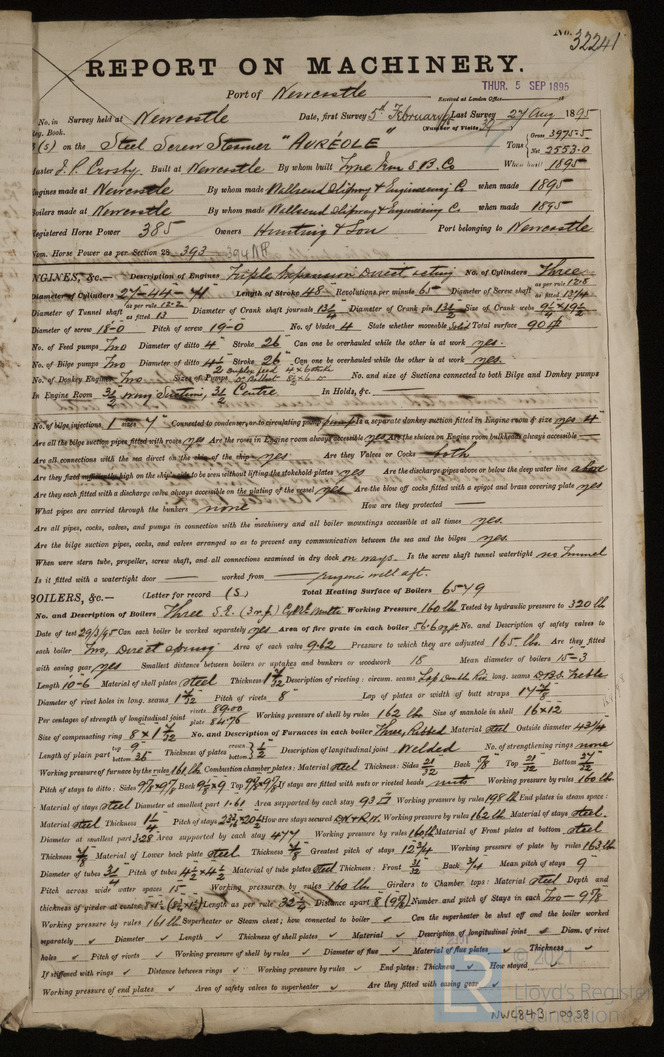 No. 32241
REPORT ON MACHINERY.
Port of Newcastle
THUR. 5 SEP 1895
Received at London Office
No. in Survey held at Newcastle Date, first Survey 5th February Last Survey 27 Aug 1895
Reg. Book. (Number of Visits)
(S) on the Steel Screw Steamer "AURÉOLE" Tons Gross 3975.5 Net 2553.0
Master J. P. Crosby Built at Newcastle By whom built Tyne Iron S.B. Co When built 1895
Engines made at Newcastle By whom made Wallsend Slipway & Engineering Co when made 1895
Boilers made at Newcastle By whom made Wallsend Slipway & Engineering Co when made 1895
Registered Horse Power 385 Owners Hunting & Son Port belonging to Newcastle
Nom. Horse Power as per Section 28 393 394 NH
ENGINES, &c.— Description of Engines Triple Expansion Direct acting No. of Cylinders Three
Diameter of Cylinders 27-44-71 Length of Stroke 48 Revolutions per minute 65 Diameter of Screw shaft as per rule 12.8 as fitted 13 1/4
Diameter of Tunnel shaft as per rule 12.2 as fitted 13 Diameter of Crank shaft journals 13 1/4 Diameter of Crank pin 13 1/2 Size of Crank webs
Diameter of screw 18-0 Pitch of screw 19-0 No. of blades 4 State whether moveable Solid Total surface 90
No. of Feed pumps Two Diameter of ditto 4 Stroke 26 Can one be overhauled while the other is at work yes.
No. of Bilge pumps Two Diameter of ditto 4 1/2 Stroke 26 Can one be overhauled while the other is at work yes.
No. of Donkey Engines Two Sizes of Pumps No. and size of Suctions connected to both Bilge and Donkey pumps
In Engine Room 3 1/2 wing Suctions, 3 1/2 Centre In Holds, &c.
No. of bilge injections 1 sizes 7 Connected to condenser, or to circulating pump pump Is a separate donkey suction fitted in Engine room & size yes 4
Are all the bilge suction pipes fitted with roses yes Are the roses in Engine room always accessible yes Are the sluices on Engine room bulkheads always accessible —
Are all connections with the sea direct on the skin of the ship yes Are they Valves or Cocks both
Are they fixed sufficiently high on the ship's side to be seen without lifting the stokehold plates yes Are the discharge pipes above or below the deep water line above
Are they each fitted with a discharge valve always accessible on the plating of the vessel yes Are the blow off cocks fitted with a spigot and brass covering plate yes
What pipes are carried through the bunkers none How are they protected —
Are all pipes, cocks, valves, and pumps in connection with the machinery and all boiler mountings accessible at all times yes.
Are the bilge suction pipes, cocks, and valves arranged so as to prevent any communication between the sea and the bilges yes.
When were stern tube, propeller, screw shaft, and all connections examined in dry dock on ways. Is the screw shaft tunnel watertight no Tunnel
Is it fitted with a watertight door — worked from — engines well aft.
BOILERS, &c.— (Letter for record (S) Total Heating Surface of Boilers 6579
No. and Description of Boilers Three S.E. Working Pressure 160 lb Tested by hydraulic pressure to 320 lb
Date of test 29/3/95 Can each boiler be worked separately yes Area of fire grate in each boiler No. and Description of safety valves to
each boiler Two, Direct spring Area of each valve 9.62 Pressure to which they are adjusted 165 lb. Are they fitted
with easing gear yes Smallest distance between boilers or uptakes and bunkers or woodwork 18 Mean diameter of boilers 15-3
Length 10-6 Material of shell plates steel Thickness Description of riveting: circum. seams Lap Double Riv. long. seams D.B.S. Treble
Diameter of rivet holes in long. seams Pitch of rivets 8 Lap of plates or width of butt straps
Per centages of strength of longitudinal joint rivets 89.00 plate 84.76 Working pressure of shell by rules 162 lb Size of manhole in shell 16 x 12
Size of compensating ring No. and Description of Furnaces in each boiler Three, Ribbed Material steel Outside diameter 43 3/4
Length of plain part top 9 bottom Thickness of plates crown bottom 1/2 Description of longitudinal joint Welded No. of strengthening rings none
Working pressure of furnace by the rules 161 lb Combustion chamber plates: Material steel Thickness: Sides 21/32 Back 5/8 Top 21/32 Bottom
Pitch of stays to ditto: Sides Back Top If stays are fitted with nuts or riveted heads nuts Working pressure by rules 160 lb.
Material of stays steel Diameter at smallest part 1.61 Area supported by each stay 93 Working pressure by rules 198 lb End plates in steam space:
Material steel Thickness 1 1/4 Pitch of stays How are stays secured Working pressure by rules 162 lb Material of stays steel.
Diameter at smallest part 328 Area supported by each stay 477 Working pressure by rules 160 lb Material of Front plates at bottom steel
Thickness Material of Lower back plate steel Thickness Greatest pitch of stays 12 3/4 Working pressure of plate by rules 163 lb
Diameter of tubes 3 1/4 Pitch of tubes 4 1/2 x 4 1/2 Material of tube plates steel Thickness: Front Back 3/4 Mean pitch of stays 9
Pitch across wide water spaces 15 Working pressures by rules 160 lb Girders to Chamber tops: Material steel Depth and
thickness of girder at centre Length as per rule 32 1/2 Distance apart Number and pitch of Stays in each Two — 9 5/8
Working pressure by rules 161 lb Superheater or Steam chest; how connected to boiler ✓ Can the superheater be shut off and the boiler worked
separately ✓ Diameter ✓ Length ✓ Thickness of shell plates ✓ Material ✓ Description of longitudinal joint ✓ Diam. of rivet
holes ✓ Pitch of rivets ✓ Working pressure of shell by rules ✓ Diameter of flue ✓ Material of flue plates ✓ Thickness ✓
If stiffened with rings ✓ Distance between rings ✓ Working pressure by rules ✓ End plates: Thickness ✓ How stayed ✓
Working pressure of end plates ✓ Area of safety valves to superheater ✓ Are they fitted with easing gear ✓
© 2021
LR
Lloyd's Register
Foundation
NWC843-0058